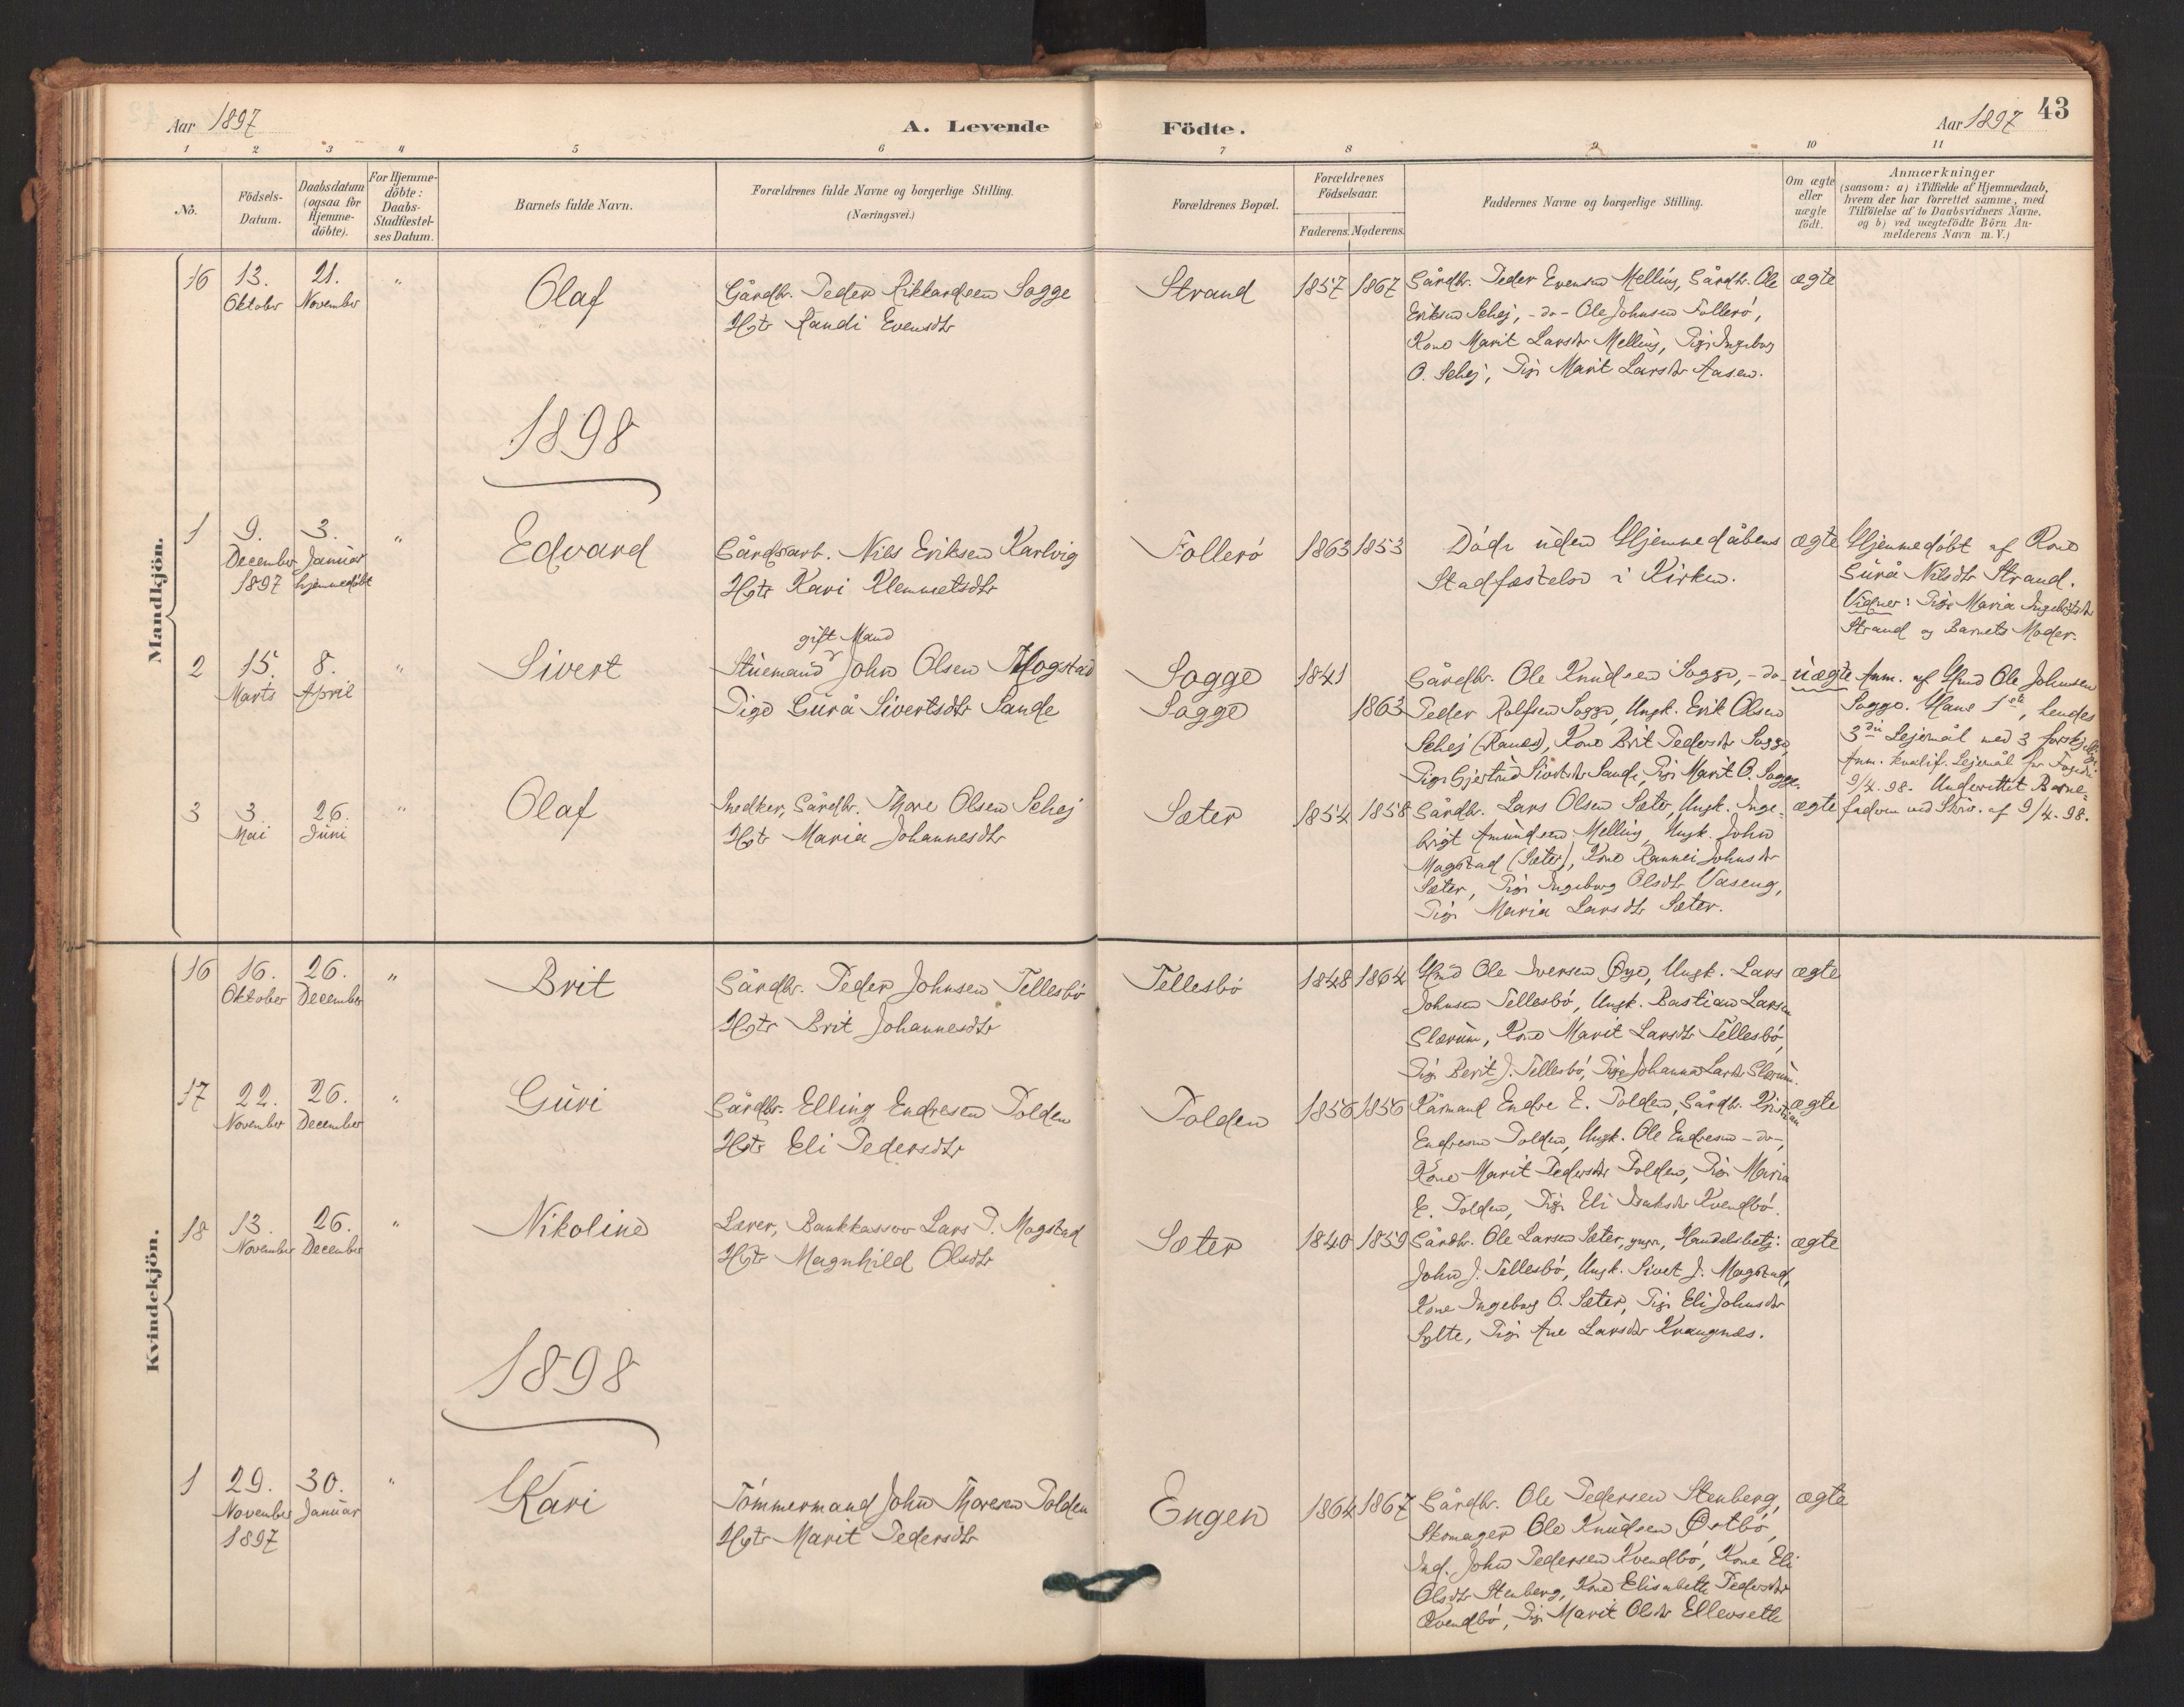 Aar 1897
A. Levende
Födte.
Aar 1897
43
1 2 3 4 5 6 7 8 9 10 11
No.
Födsels-
Datum.
Daabsdatum
(ogsaa for
Hjemme-
döbte).
For Hjemme-
döbte:
Daabs-
Stadfæstel-
ses Datum.
Barnets fulde Navn.
Forældrenes fulde Navne og borgerlige Stilling.
(Næringsvei.)
Forældrenes Bopæl.
Forældrenes
Födselsaar.
Faderens. Moderens.
Faddernes Navne og borgerlige Stilling.
Om ægte
eller
uægte
födt.
Anmærkninger
(saasom: a) i Tilfælde af Hjemmedaab,
hvem der har forrettet samme, med
Tilföielse af to Daabsvidners Navne,
og b) ved uægtefödte Börn An-
melderens Navn m. V.)
Mandkjön.
16
13.
Oktober
21.
November
"
Olaf
Gårdbr. Peder Rikkardsen Sogge
Hstr Randi Evensdtr
Strand
1857 1867
Gårdbr. Peder Evensen Melling, Gårdbr. Ole
Eriksen Sehej, -do- Ole Johnsen Follerö,
Kone Marit Larsdtr Melling, Pige Ingeborg
O. Sehej, Pige Marit Larsdtr Aasen.
ægte
1898
1
9.
December
1897
3.
Januar
hjemmedöbt
"
Edvard
Gårdsarb. Nils Eriksen Karlvig
Hstr Kari Klemmetsdtr
Follerö
1863 1853
Döde uden Hjemmedåbens
Stadfæstelse i Kirken.
ægte
Hjemmedöbt af Kone
Gurå Nilsdtr Strand.
Vidner: Pige Maria Ingebrigtsdtr
Strand og Barnets Moder.
2
15.
Marts
8.
April
"
Sivert
gift Mand
Stuemand John Olsen Mogstad
Pige Gurå Sivertsdtr Sande
Sogge
Sogge
1841
1863
Gårdbr. Ole Knudsen Sogge, -do-
Peder Rolfsen Sogge, Ungk. Erik Olsen
Sehej (Ranes), Kone Brit Pedersdtr Sogge,
Pige Gjertrud Sivertsdtr Sande, Pige Marit O. Sogge.
uægte
Anm. af Hmd Ole Johnsen
Sogge. Hans 1ste, hendes
3die Lejermål med 3 forskjellige.
Anm. kvalif. Lejermål for Fogden
9/4. 98. Underrettet Barne-
faderen ved Skriv. af 9/4. 98.
3
3.
Mai
26.
Juni
"
Olaf
Snedker, Gårdbr. Thore Olsen Sehej
Hstr Maria Johannesdtr
Sæter
1854 1858
Gårdbr. Lars Olsen Sæter, Ungk. Inge-
brigt Amundsen Melling, Ungk. John
Mogstad (Sæter), Kone Rannei Johnsdtr
Sæter, Pige Ingeborg Olsdtr Vaseng,
Pige Maria Larsdtr Sæter.
ægte
Kvindekjön.
16
16.
Oktober
26.
December
"
Brit
Gårdbr. Peder Johnsen Tellesbö
Hstr Brit Johannesdtr
Tellesbö
1848 1864
Hmd Ole Iversen Øye, Ungk. Lars
Johnsen Tellesbö, Ungk. Bastian Larsen
Glærum, Kone Marit Larsdtr Tellesbö,
Pige Berit J. Tellesbö, Pige Johanna Larsdtr Glærum.
ægte
17
22.
November
26.
December
"
Guri
Gårdbr. Elling Endresen Polden
Hstr Eli Pedersdtr
Polden
1856 1856
Kårmand Endre E. Polden, Gårdbr. Kristian
Endresen Polden, Ungk. Ole Endresen -do-,
Kone Marit Pedersdtr Polden, Pige Maria
E. Polden, Pige Eli Isaksdtr Kvendbö.
ægte
18
13.
November
26.
December
"
Nikoline
Lærer, Bankkasserer Lars P. Mogstad
Hstr Magnhild Olsdtr
Sæter
1840 1859
Gårdbr. Ole Larsen Sæter, yngre, Handelsbetj.
John J. Tellesbö, Ungk. Sivert J. Mogstad,
Kone Ingeborg O. Sæter, Pige Eli Johnsdtr
Sylte, Pige Ane Larsdtr Krangnes.
ægte
1898
1
29.
November
1897
30.
Januar
"
Kari
Tömmermand John Thoresen Polden
Hstr Marit Pedersdtr
Engen
1864 1867
Gårdbr. Ole Pedersen Stenberg,
Skomager Ole Knudsen Østbö,
Ind. John Pedersen Kvendbö, Kone Eli
Olsdtr Stenberg, Kone Elisabeth Pedersdtr
Kvendbö, Pige Marit Olsdtr Ellevseth
ægte